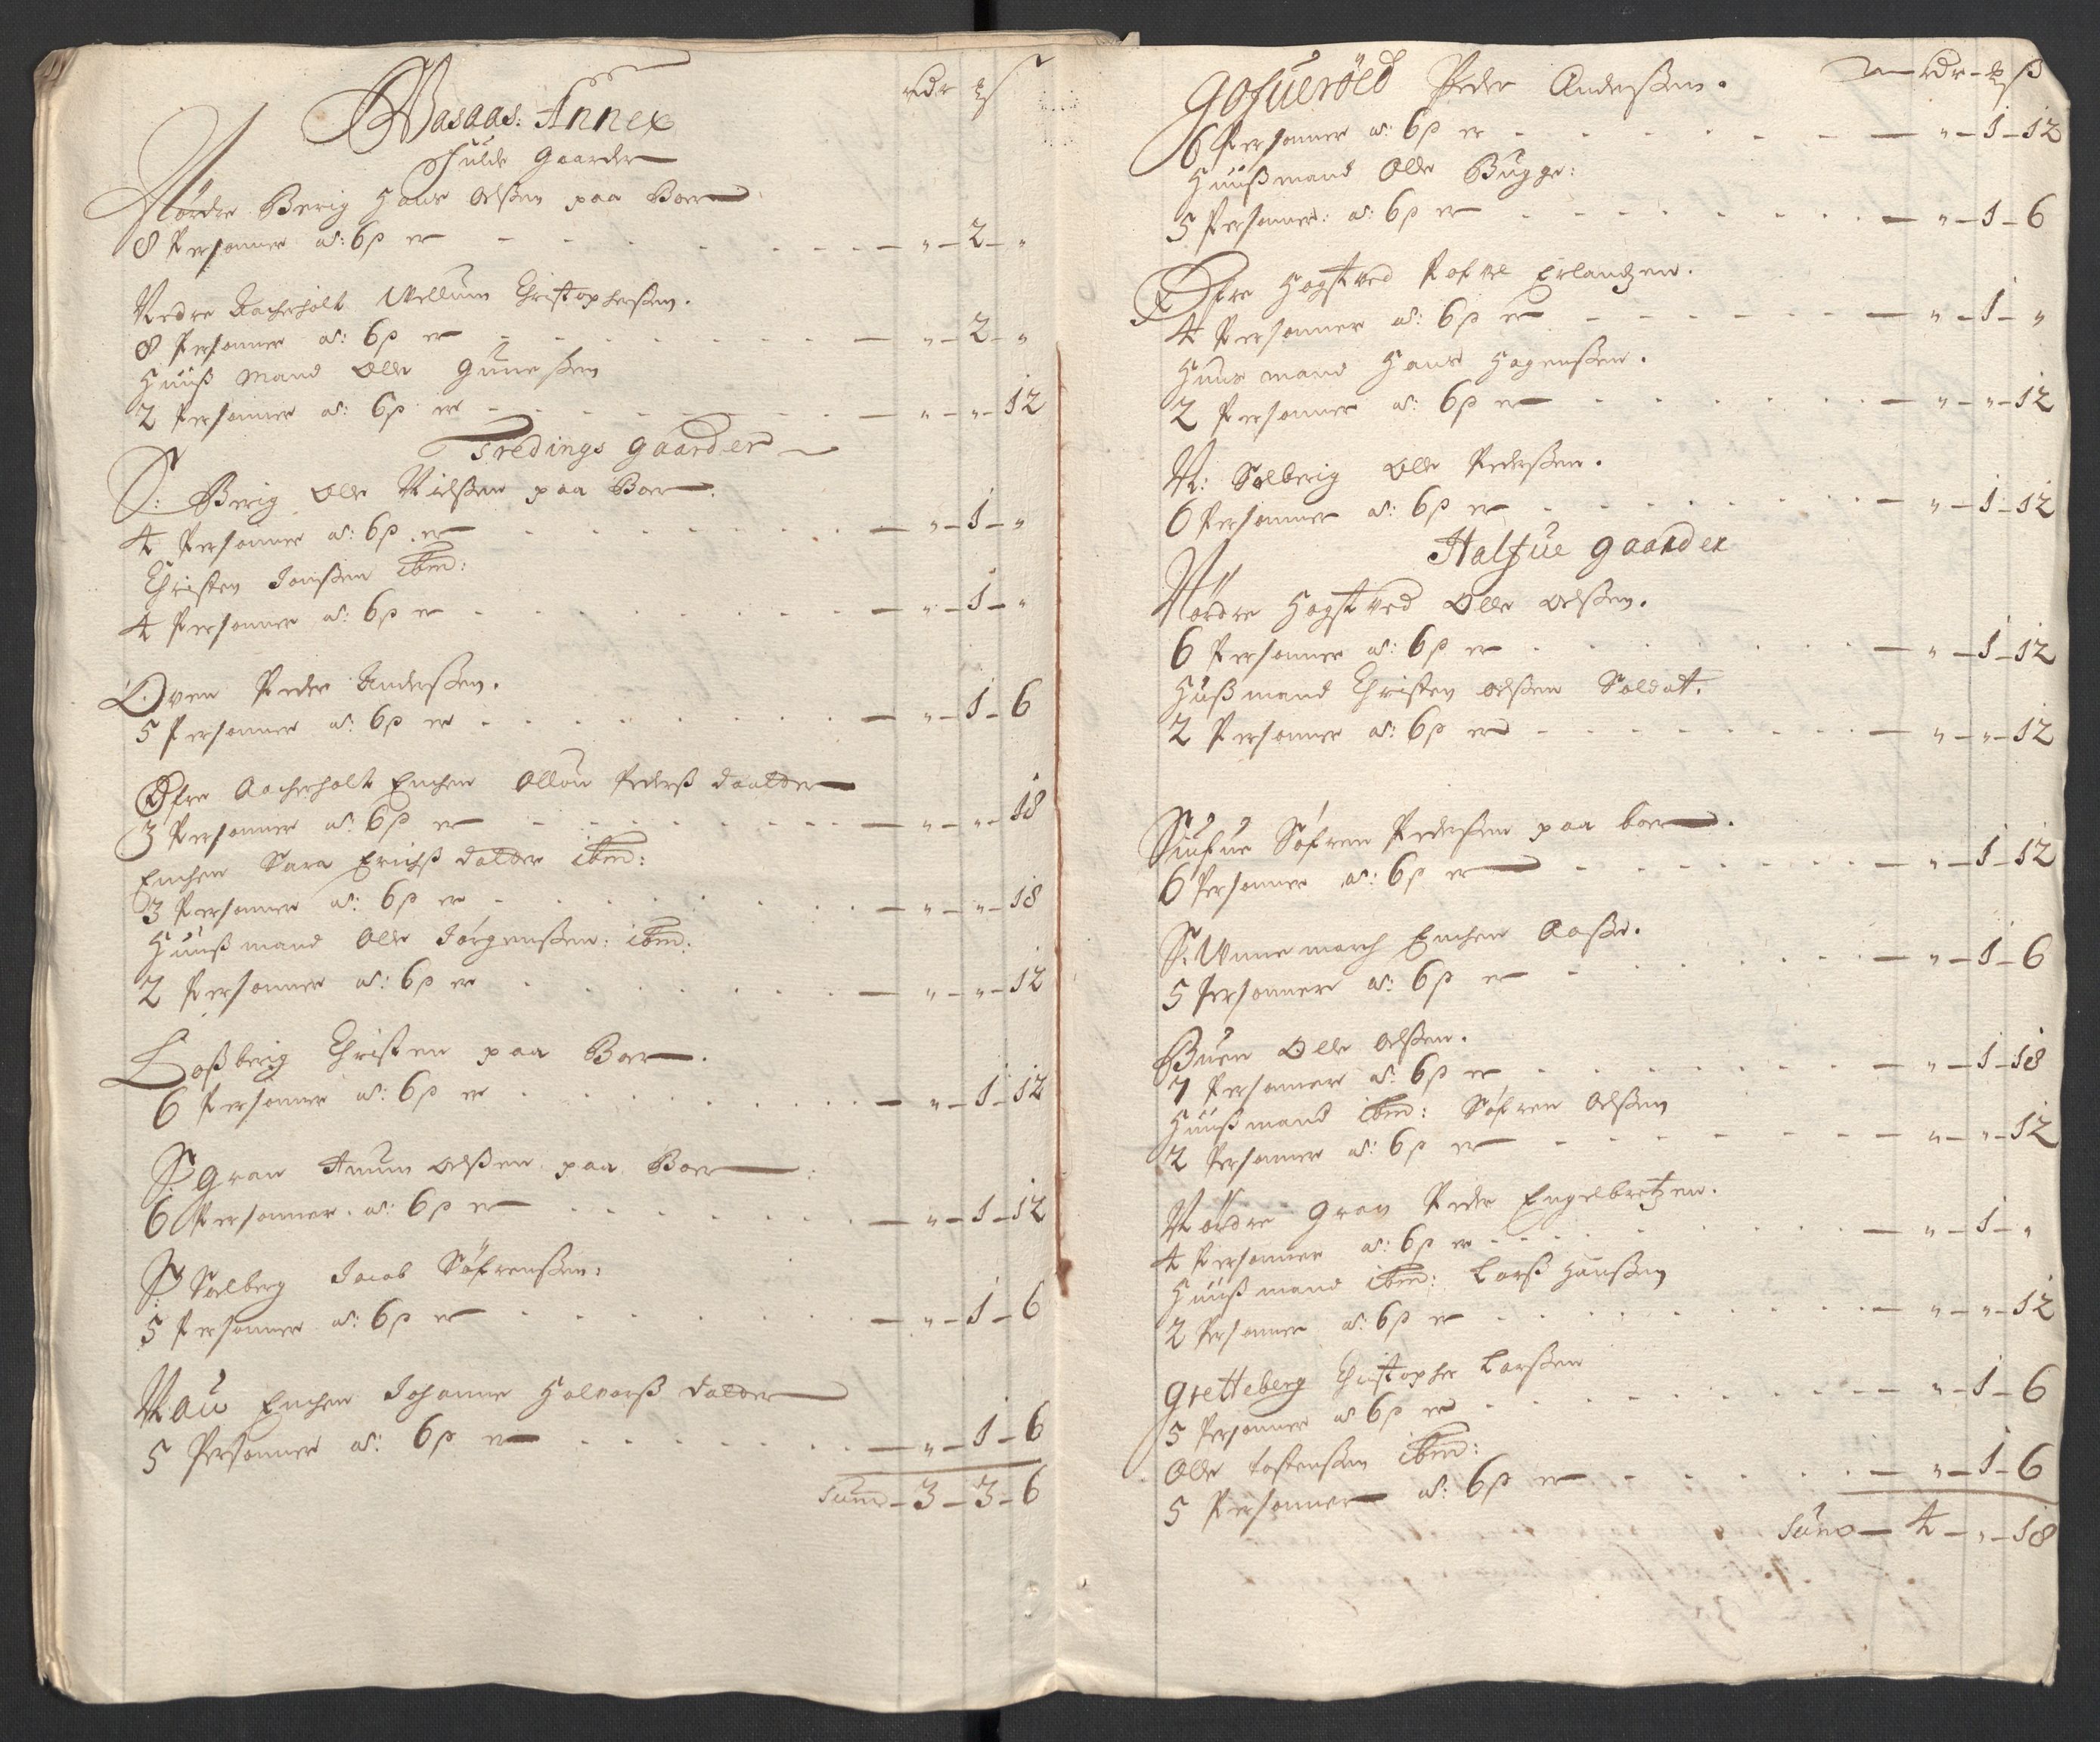 Wasaas: Annex
rdr ß
Fulde Gaarder
Nordre Berig Hans Olßen paa Boer
8 Personner a: 6 ß er - - - „ - 2 - „
Nedre Aacherholt Wellum Christophersen.
8 Personner a: 6 ß er - - - „ - 2 - „
Huuß mand Olle Gunnersen
2 Personner a: 6 ß er - - - „ - „ - 12
Tredings gaarder
S: Berig Olle Nielßen paa Boer
4 Personner a: 6 ß er - - - „ - 1 - „
Christen Jonßen ibm:
4 Personner a: 6 ß er - - - „ - 1 - „
Oven Peder Anderßen.
5 Personner a: 6 ß er - - - „ - 1 - 6
Øfre Aacherholt Enchen Allou Pederß daatter
3 Personner a: 6 ß er - - - „ - „ - 18
Enchen Sara Erichß datter ibm:
3 Personner a: 6 ß er - - - „ - „ - 18
Huuß mand Olle Jørgenßen: ibm:
2 Personner a: 6 ß er - - - „ - „ - 12
Loßberig Christen paa Boer.
6 Personner a: 6 ß er - - - „ - 1 - 12
S: Gran Anum Olßen paa Boer:
6 Personner a: 6 ß er - - - „ - 1 - 12
S: Solberg Jacob Søfrenßen:
5 Personner a: 6 ß er - - - „ - 1 - 6
Rau Enchen Johanne Halvorß datter
5 Personner a: 6 ß er - - - „ - 1 - 6
Sum - 3 - 3 - 6
Gofueröed Peder Anderßen.
rdr - ß
6 Personner a: 6 ß er - - - „ - 1 - 12
Huußmand Olle Bugge:
5 Personner: a: 6 ß er - - - „ - 1 - 6
Øfre Hogstved Pofvel Erlandzen.
4 Personner a: 6 ß er - - - „ - 1 - „
Huus mand Hans Hogenßen.
2 Personner a: 6 ß er - - - „ - „ - 12
N: Solberig Olle Pederßen.
6 Personner a: 6 ß er - - - „ - 1 - 12
Halfue gaarder
Nordre Hogstved Olle Olßen.
6 Personner a: 6 ß er - - - „ - 1 - 12
Hußmand Christen Olßen Soldat.
2 Personner a: 6 ß er - - - „ - „ - 12
Søfren Pederßen paa boer.
6 Personner a: 6 ß er - - - „ - 1 - 12
S: Winnemarch Enchen Aaße.
5 Personner a: 6 ß er - - - „ - 1 - 6
Buen Olle Olßen.
7 Personner a: 6 ß er - - - „ - 1 - 18
Huußmand ibm: Søfren Olßen
2 Personner a: 6 ß er - - - „ - „ - 12
Nordre Gran Peder Engelbretzen.
4 Personner a: 6 ß er - - - „ - 1 - „
Huuß mand ibm: Larß Hanßen
2 Personner a: 6 ß er - - - „ - „ - 12
Gretteberg Christopher Larßen
5 Personner a 6 ß er - - - „ - 1 - 6
Olle Tostenßen ibm:
5 Personner a: 6 ß er - - - „ - 1 - 6
Suma - 4 - „ - 18